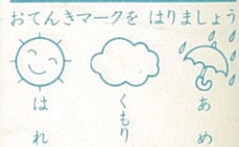 おてんきマークを はりましょう
はれ
くもり
あめ